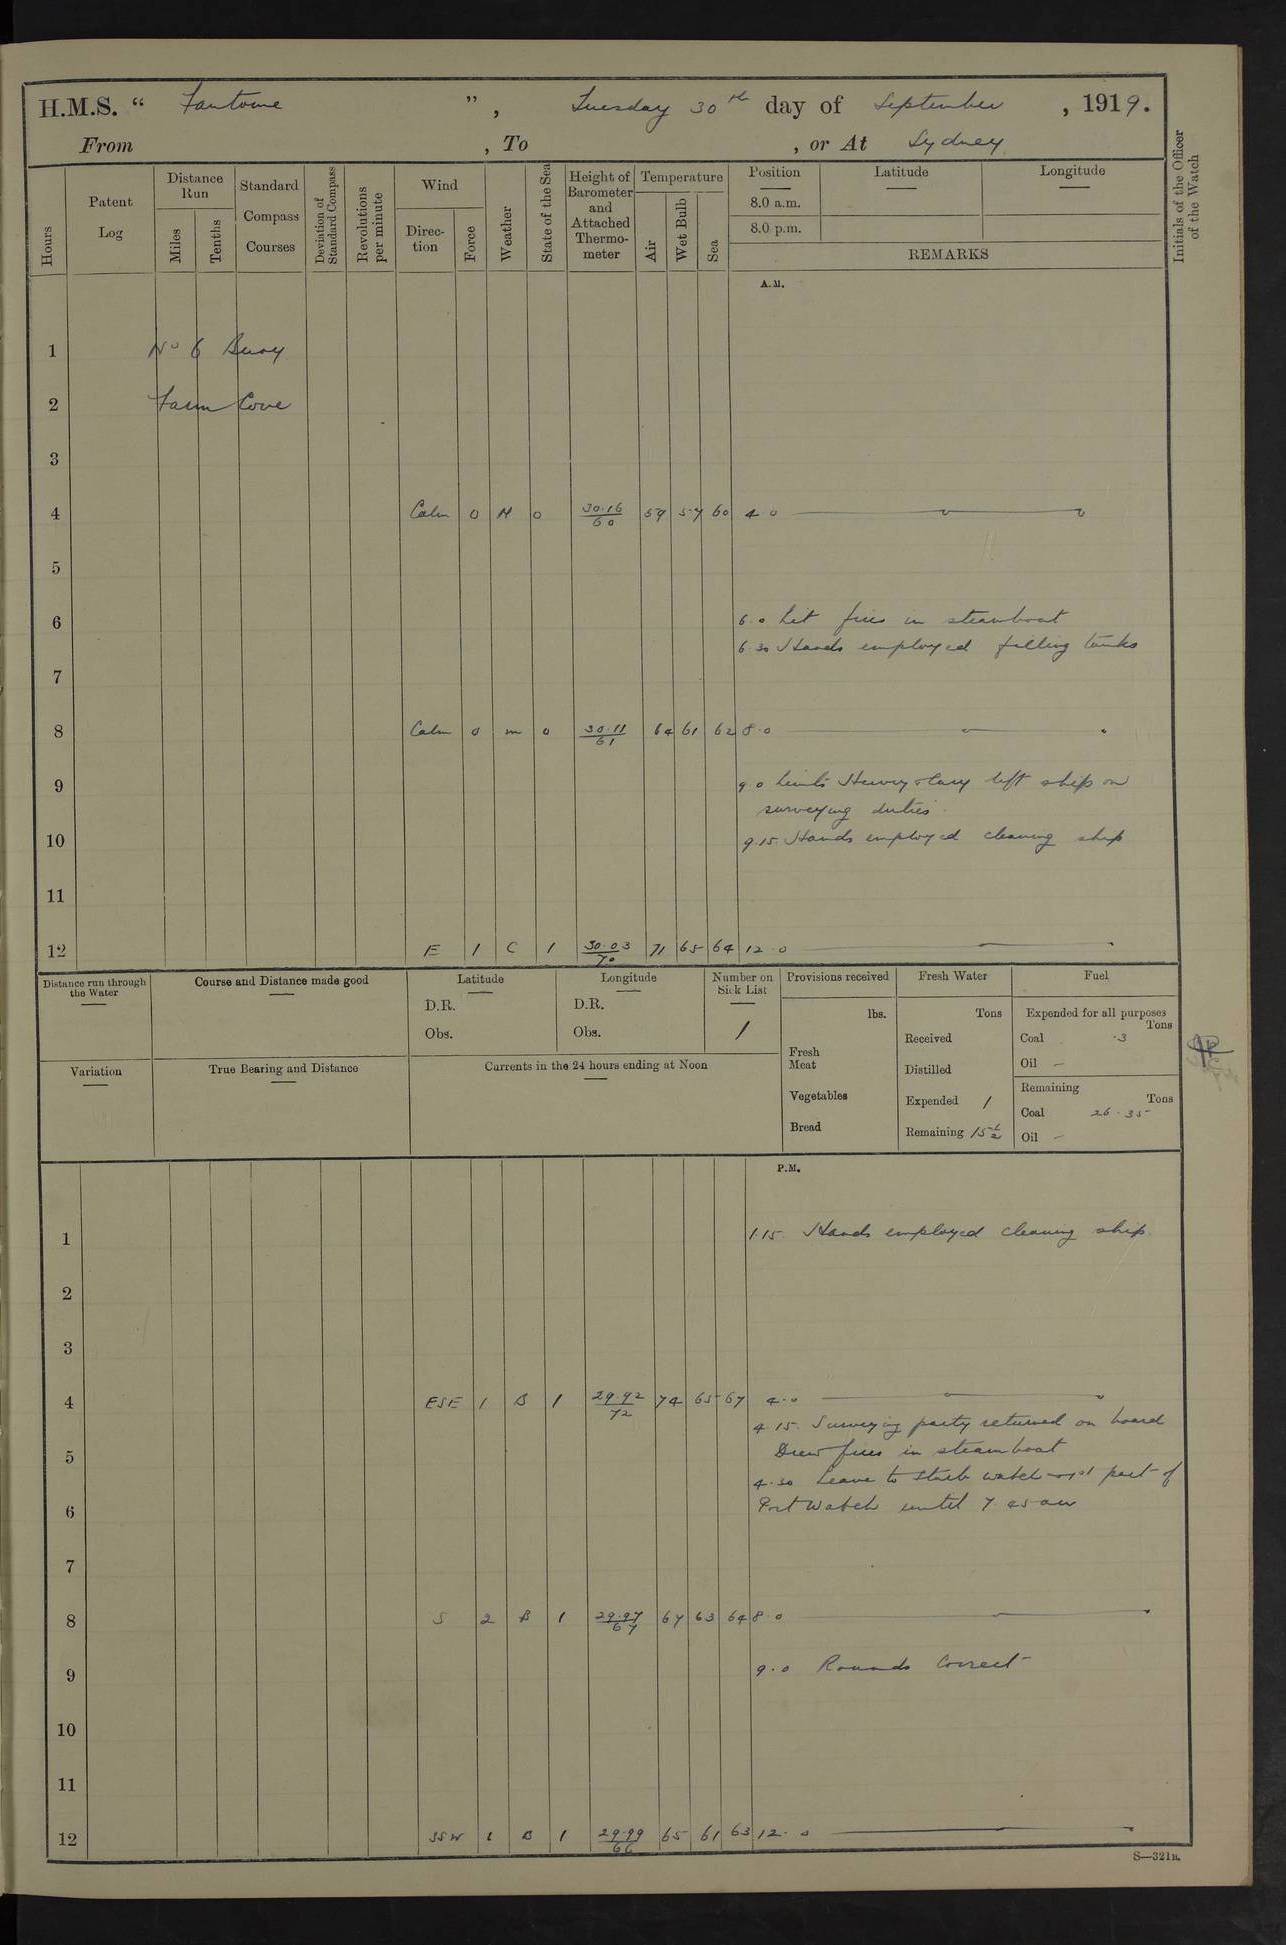 H.M.S. “ Fantome ”, Tuesday 30th day of September, 1919.
From , To , or At Sydney
Hours
Patent Log
Distance Run
Miles
Tenths
Standard Compass Courses
Deviation of Standard Compass
Revolutions per minute
Wind
Direction
Force
Weather
State of the Sea
Height of Barometer and Attached Thermometer
Temperature
Air
Wet Bulb
Sea
Position
8.0 a.m.
8.0 p.m.
Latitude
Longitude
REMARKS
Initials of the Officer of the Watch
A.M.
1 No 6 Buoy
2 Farm Cove
3
4 Calm 0 M 0 30.16/60 59 57 60 4.0
5
6 6.0 Lit fires in steamboat
6.30 Hands employed filling tanks
7
8 Calm 0 m 0 30.11/61 64 61 62 8.0
9 9.0 Lieuts Harvey & Cary left ship on
surveying duties.
10 9.15. Hands employed cleaning ship
11
12 E 1 C 1 30.03/70 71 65 64 12.0
Distance run through the Water
Course and Distance made good
Latitude
D.R.
Obs.
Longitude
D.R.
Obs.
Number on Sick List
1
Provisions received
lbs.
Fresh Meat
Vegetables
Bread
Fresh Water
Tons
Received
Distilled
Expended 1
Remaining 15½
Fuel
Expended for all purposes
Tons
Coal .3
Oil –
Remaining
Tons
Coal 26.35
Oil –
Variation
True Bearing and Distance
Currents in the 24 hours ending at Noon
P.M.
1 1.15. Hands employed cleaning ship.
2
3
4 ESE 1 B 1 29.92/72 74 65 67 4.0
4.15. Surveying party returned on board
5 Drew fires in steamboat
4.30 Leave to Starb watch & 1st part of
6 Port Watch until 7.45 am
7
8 S 2 B 1 29.97/67 67 63 64 8.0
9 9.0 Rounds Correct
10
11
12 SSW 1 B 1 29.99/66 65 61 63 12.0
S—321B.